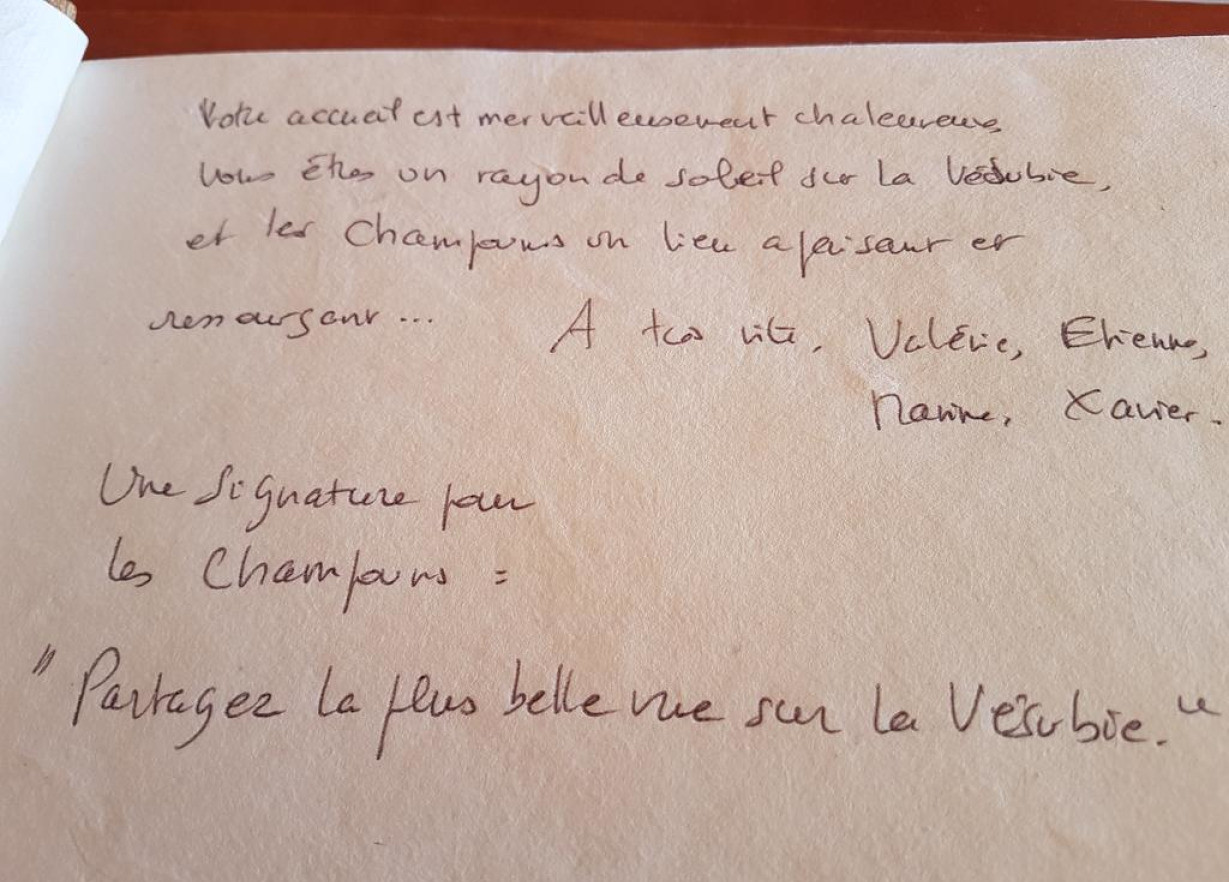 Votre accueil est merveilleusement chaleureux,
Vous êtes un rayon de soleil sur la Vésubie,
et les Champouns un lieu apaisant et
ressourçant... A très vite, Valérie, Etienne,
Marine, Xavier.
Une signature pour
les Champouns :
"Partagez la plus belle vue sur la Vésubie."